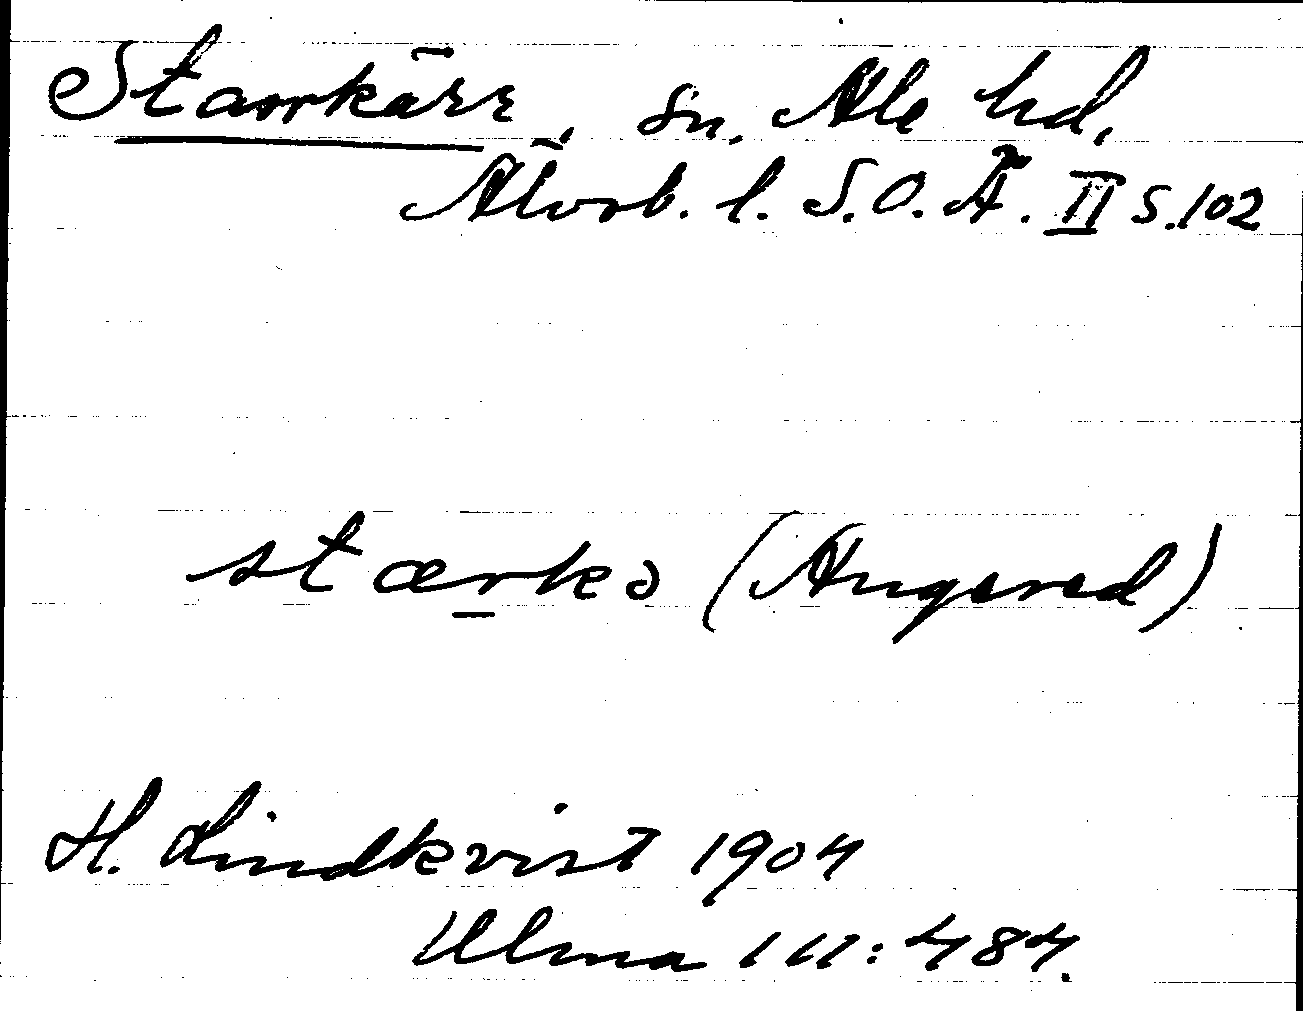 Starrkärr, sn. Ale hd,
Älvsb. l. S.O.Ä. II s.102
stærkə (Angered)
H. Lindkvist 1904
Ulma 111:484.